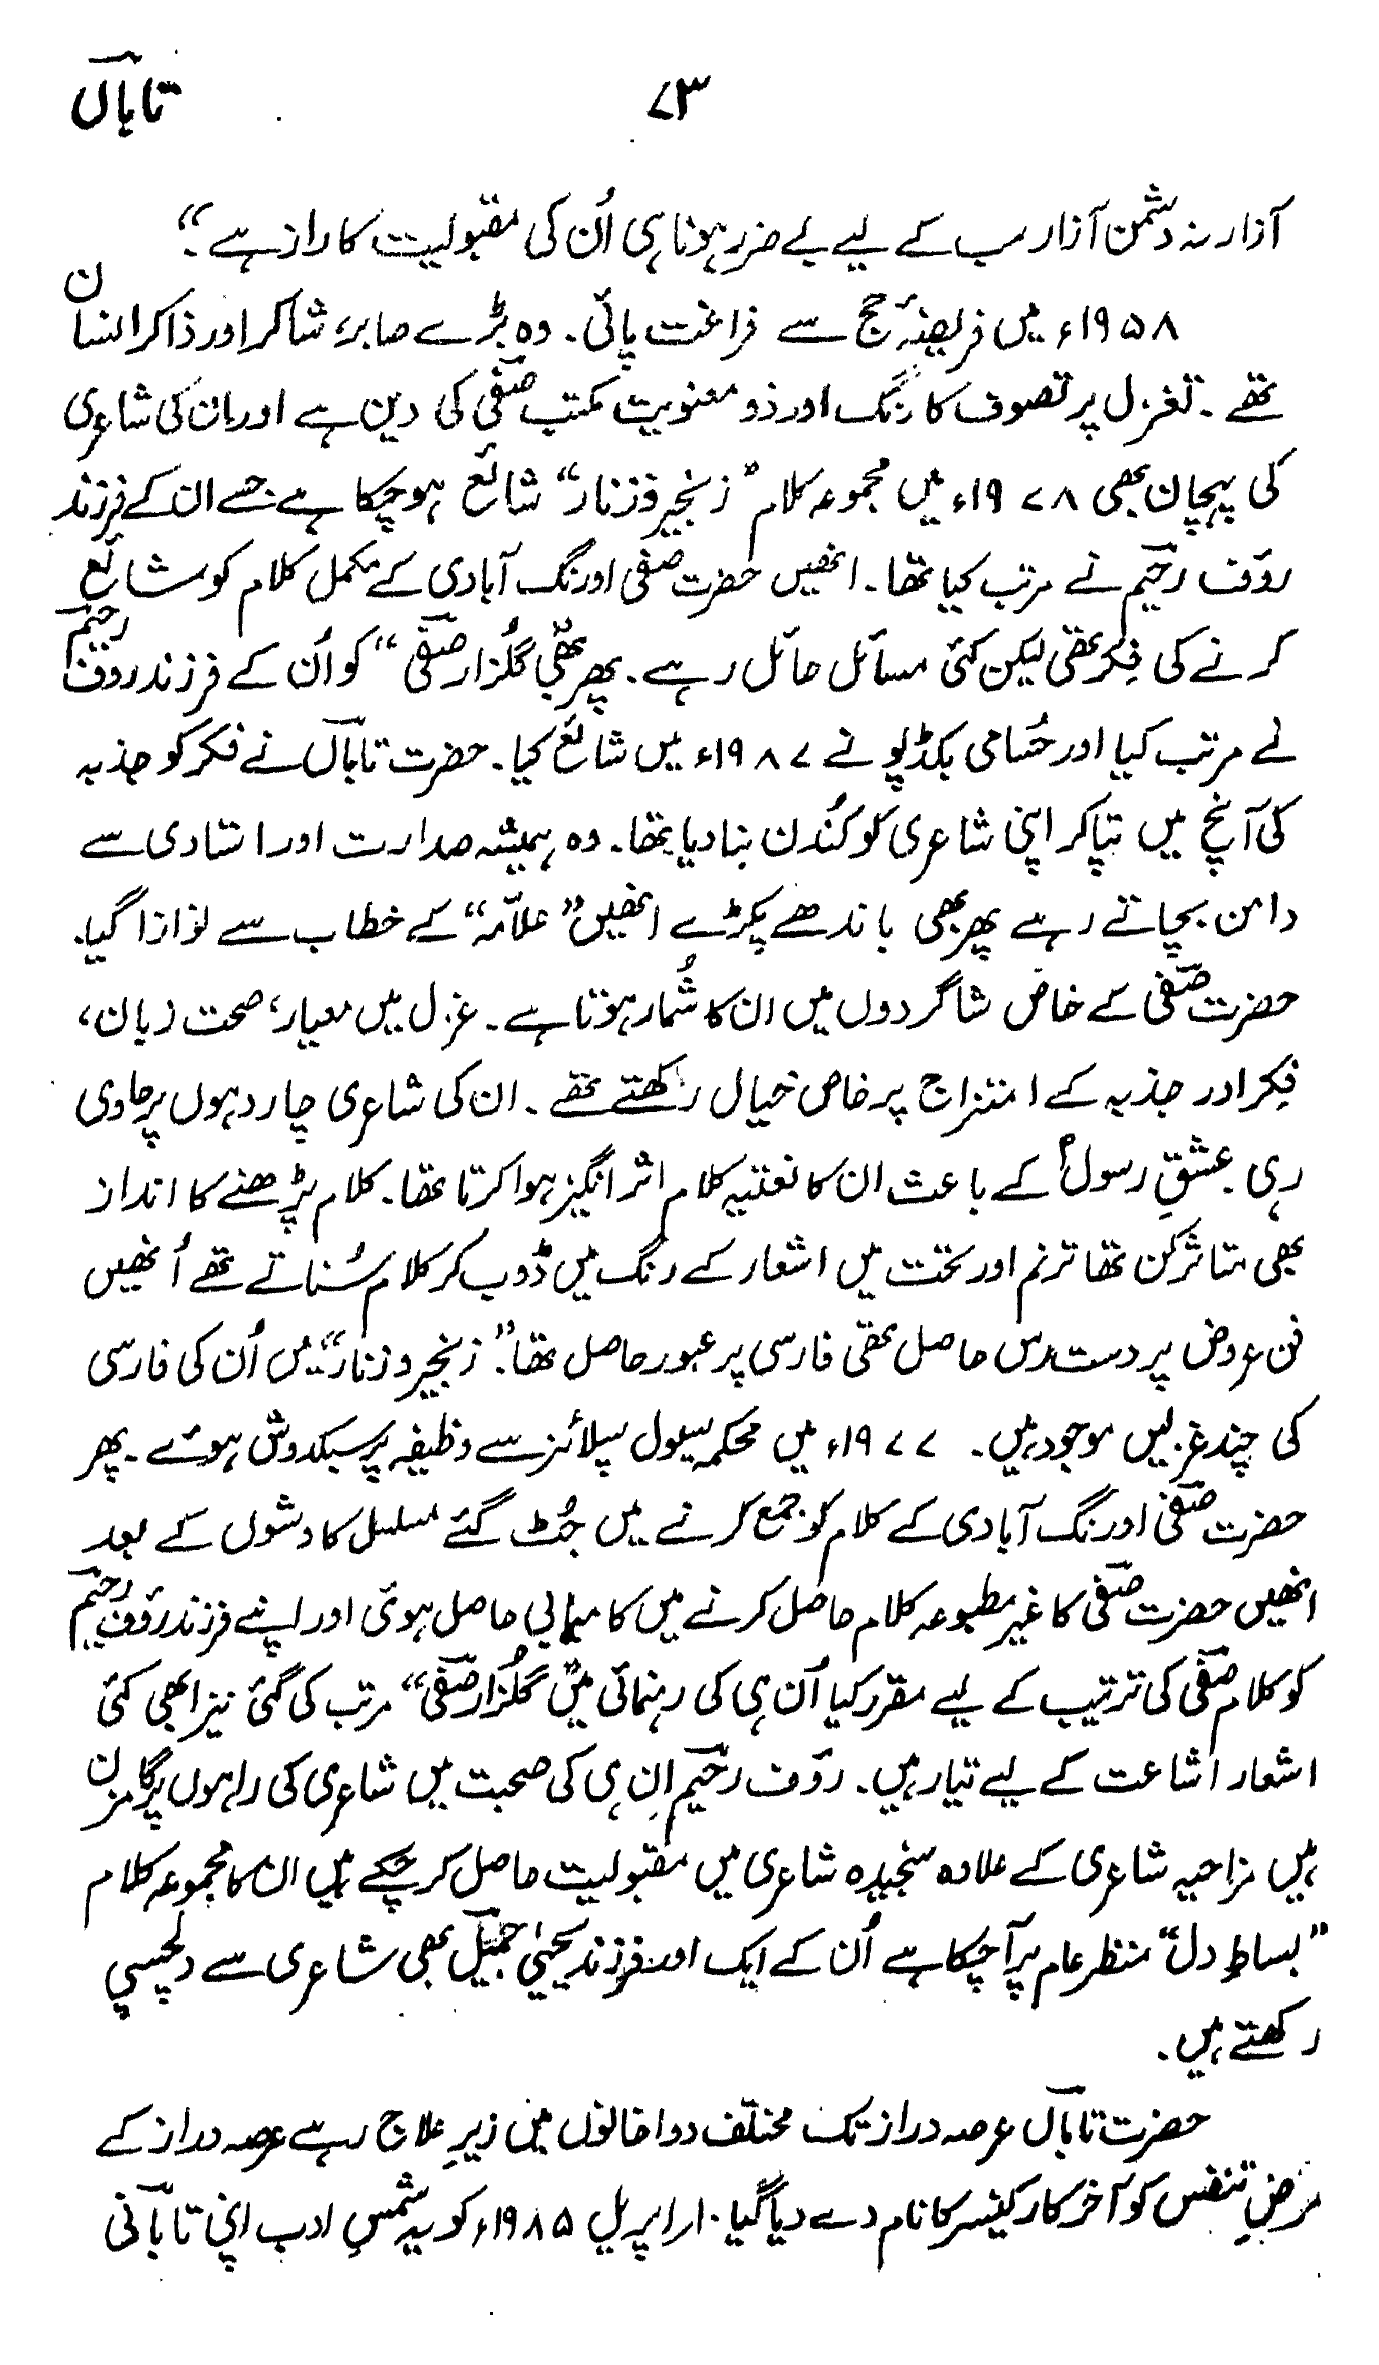 ۷۳ تاباںؔ
آزار نہ دشمن آزار سب کے لیے بے ضرر ہونا ہی اُن کی مقبولیت کا راز ہے۔“
۱۹۵۸ء میں فریضۂ حج سے فراغت پائی۔ وہ بڑے صابر، شاکر اور ذاکر انسان
تھے۔ تغزل پر تصوف کا رنگ اور ذو معنویت مکتب صفیؔ کی دین ہے اور ان کی شاعری
کی پہچان بھی ۱۹۷۸ء میں مجموعہ کلام ”زنجیر و زنار“ شائع ہو چکا ہے جسے ان کے فرزند
رؤف رحیمؔ نے مرتب کیا تھا۔ انھیں حضرت صفیؔ اورنگ آبادی کے مکمل کلام کو شائع
کرنے کی فِکر تھی لیکن کئی مسائل حائل رہے۔ پھر بھی ”گلُزارِ صفیؔ“ کو اُن کے فرزند رؤف رحیمؔ
نے مرتب کیا اور حُسامی بکڈپو نے ۱۹۸۷ء میں شائع کیا۔ حضرت تاباںؔ نے فکر کو جذبہ
کی آنچ میں تپا کر اپنی شاعری کو کُندن بنا دیا تھا۔ وہ ہمیشہ صدارت اور استادی سے
دامن بچاتے رہے پھر بھی باندھے پکڑے انھیں ”علاّمہ“ کے خطاب سے نوازا گیا۔
حضرت صفیؔ کے خاص شاگردوں میں ان کا شُمار ہوتا ہے۔ غزل میں معیار، صحت زبان،
فِکر اور جذبہ کے امتزاج پر خاص خیال رکھتے تھے۔ ان کی شاعری چار دہوں پر حاوی
رہی۔ عشقِ رسولؐ کے باعث ان کا نعتیہ کلام اثر انگیز ہوا کرتا تھا۔ کلام پڑھنے کا انداز
بھی متاثر کن تھا ترنم اور تحت میں اشعار کے رنگ میں ڈوب کر کلام سُناتے تھے اُنھیں
فن عروض پر دسترس حاصل تھی فارسی پر عبور حاصل تھا۔ ”زنجیر و زنار“ میں اُن کی فارسی
کی چند غزلیں موجود ہیں۔ ۱۹۷۷ء میں محکمہ سیول سپلائز سے وظیفہ پر سبکدوش ہوئے۔ پھر
حضرت صفیؔ اورنگ آبادی کے کلام کو جمع کرنے میں جُٹ گئے مسلسل کاوشوں کے بعد
انھیں حضرت صفیؔ کا غیر مطبوعہ کلام حاصل کرنے میں کامیابی حاصل ہوئی اور اپنے فرزند رؤف رحیمؔ
کو کلام صفیؔ کی ترتیب کے لیے مقرر کیا اُن ہی کی رہنمائی میں ”گلُزارِ صفیؔ“ مرتب کی گئی نیز ابھی کئی
اشعار اشاعت کے لیے تیار ہیں۔ رؤف رحیمؔ اِن ہی کی صحبت میں شاعری کی راہوں پر گامزن
ہیں مزاحیہ شاعری کے علاوہ سنجیدہ شاعری میں مقبولیت حاصل کر چکے ہیں ان کا مجموعہ کلام
”بساطِ دل“ منظر عام پر آ چکا ہے اُن کے ایک اور فرزند یحییٰ جمیلؔ بھی شاعری سے دلچسپی
رکھتے ہیں۔
حضرت تاباںؔ عرصہ دراز تک مختلف دواخانوں میں زیرِ علاج رہے عرصہ دراز کے
مرضِ تنفس کو آخر کار کینسر کا نام دے دیا گیا۔ ۱۰ اپریل ۱۹۸۵ء کو یہ شمسِ ادب اپنی تابانی